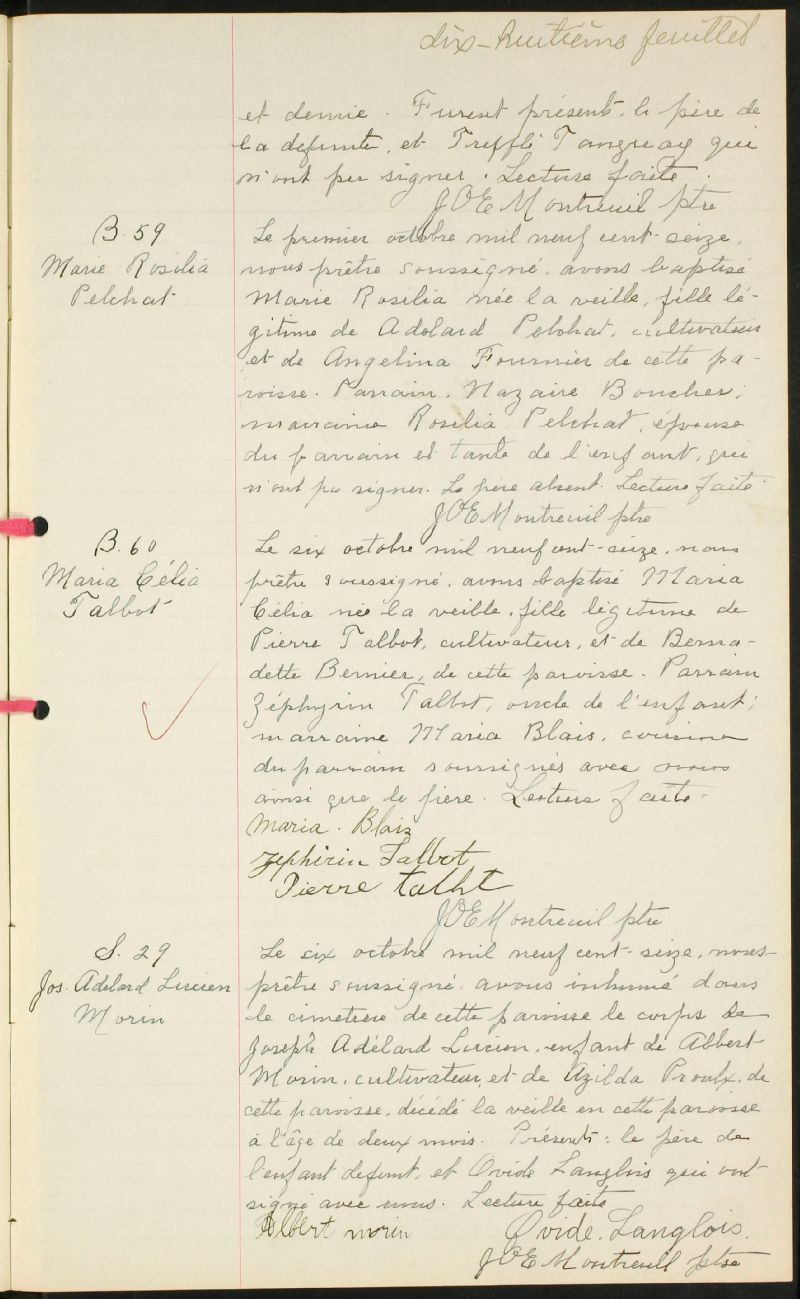 dix-huitième feuillet
et demie. Furent présents, le père de
la defunte, et Trefflé Tanguay qui
n'ont pu signer. Lecture faite.
JOE Montreuil ptre
B. 59
Marie Rosilia
Pelchat
Le premier octobre mil neuf cent-seize,
nous prêtre soussigné, avons baptisé
Marie Rosilia née la veille, fille lé-
gitime de Adélard Pelchat, cultivateur
et de Angelina Fournier de cette pa-
roisse. Parrain, Nazaire Boucher;
marraine Rosilia Pelchat, épouse
du parrain et tante de l'enfant, qui
n'ont pu signer. Le père absent. Lecture faite.
JOE Montreuil ptre
B. 60
Maria Célia
Talbot
Le six octobre mil neuf cent-seize, nous
prêtre soussigné, avons baptisé Maria
Célia née la veille, fille légitime de
Pierre Talbot, cultivateur, et de Berna-
dette Bernier, de cette paroisse. Parrain
Zéphyrin Talbot, oncle de l'enfant;
marraine Maria Blais, cousine
du parrain soussignés avec nous
ainsi que le père. Lecture faite.
Maria. Blais
Zephirin Talbot
Pierre talbt
JOE Montreuil ptre
S. 29
Jos. Adélard Lucien
Morin
Le six octobre mil neuf cent-seize, nous
prêtre soussigné, avons inhumé dans
le cimetière de cette paroisse le corps de
Joseph Adélard Lucien, enfant de Albert
Morin, cultivateur, et de Azilda Proulx, de
cette paroisse, décédé la veille en cette paroisse
à l'âge de deux mois. Présents: le père de
l'enfant defunt, et Ovide Langlois qui ont
signé avec nous. Lecture faite
Albert morin Ovide. Langlois.
JOE Montreuil ptre